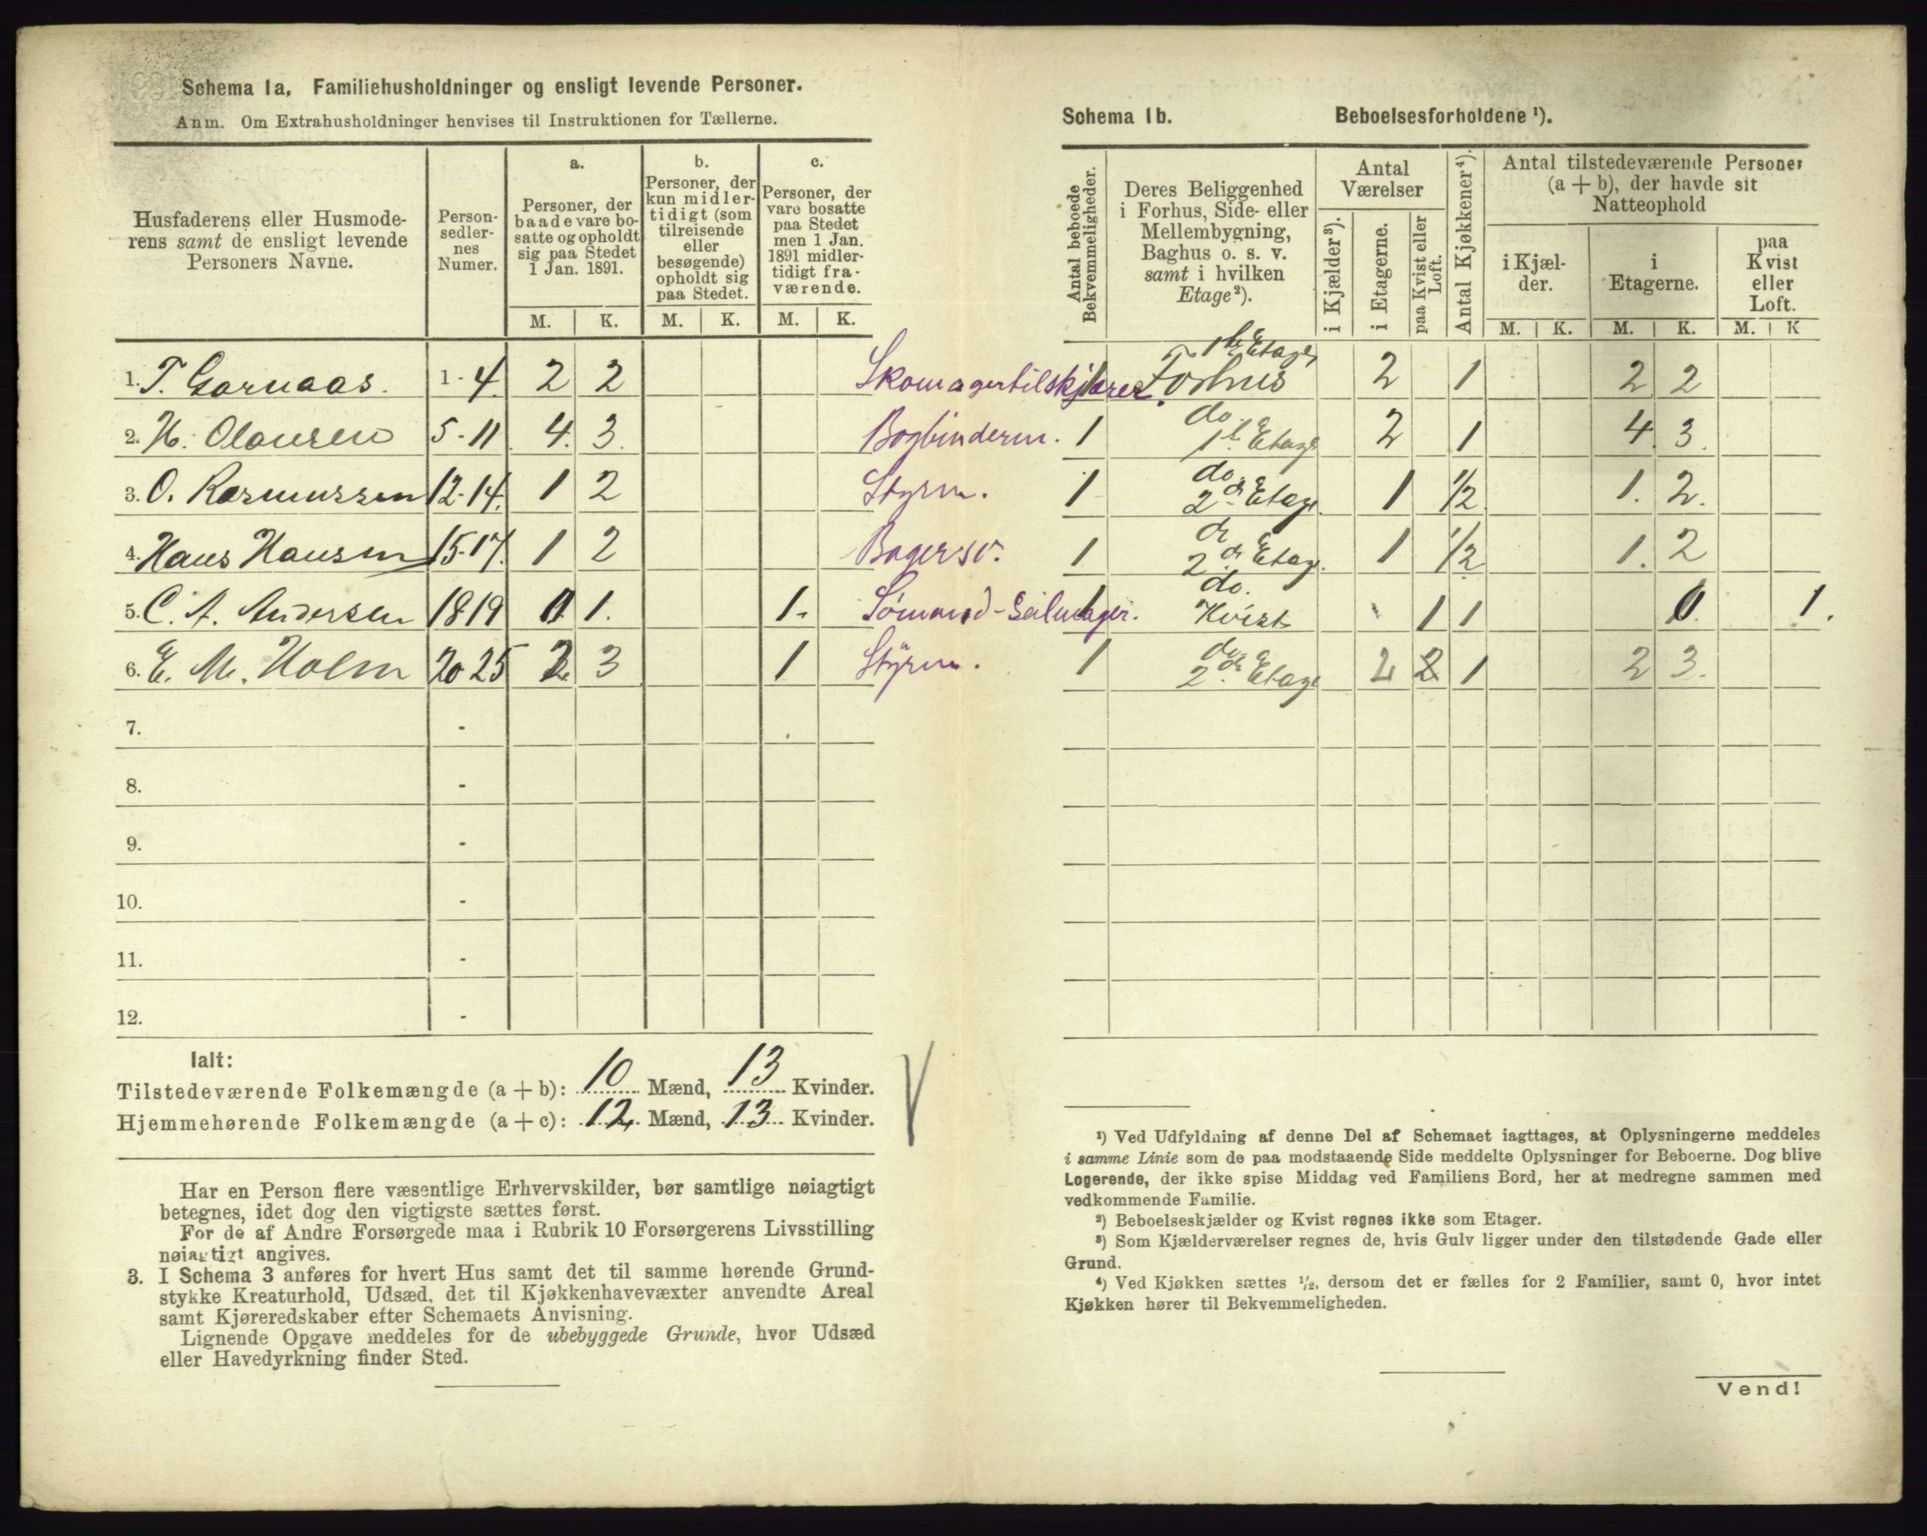 Schema 1a. Familiehusholdninger og ensligt levende Personer.
Anm. Om Extrahusholdninger henvises til Instruktionen for Tællerne.
Husfaderens eller Husmoderens samt de ensligt levende Personers Navne.
Personsedlernes Numer.
a. Personer, der baade vare bosatte og opholdt sig paa Stedet 1 Jan. 1891.
b. Personer, der kun midlertidigt (som tilreisende eller besøgende) opholdt sig paa Stedet.
c. Personer, der vare bosatte paa Stedet men 1 Jan. 1891 midlertidigt fraværende.
M. K. M. K. M. K.
1. T. Garnaas. 1-4. 2 2 Skomagertilskjærer.
2. H. Olausen 5-11 4. 3. Bogbinderm.
3. O. Rasmussen 12-14. 1 2 Styrm.
4. Hans Hansen 15-17. 1 2 Bagersv.
5. C. A. Andersen 18-19 1. 1. Sømand-Seilmager.
6. E. M. Holm 20-25 2 3 1 Styrm.
7. -
8. -
9. -
10. -
11. -
12. -
Ialt:
Tilstedeværende Folkemængde (a + b): 10 Mænd, 13 Kvinder.
Hjemmehørende Folkemængde (a + c): 12 Mænd, 13 Kvinder.
Har en Person flere væsentlige Erhvervskilder, bør samtlige nøiagtigt
betegnes, idet dog den vigtigste sættes først.
For de af Andre Forsørgede maa i Rubrik 10 Forsørgerens Livsstilling
nøiagtigt angives.
3. I Schema 3 anføres for hvert Hus samt det til samme hørende Grund-
stykke Kreaturhold, Udsæd, det til Kjøkkenhavevæxter anvendte Areal
samt Kjøreredskaber efter Schemaets Anvisning.
Lignende Opgave meddeles for de ubebyggede Grunde, hvor Udsæd
eller Havedyrkning finder Sted.
Schema 1b. Beboelsesforholdene ¹).
Antal beboede Bekvemmeligheder.
Deres Beliggenhed i Forhus, Side- eller Mellembygning, Baghus o. s. v. samt i hvilken Etage²).
Antal Værelser
i Kjælder³).
i Etagerne.
paa Kvist eller Loft.
Antal Kjøkkener⁴).
Antal tilstedeværende Personer (a + b), der havde sit Natteophold
i Kjælder.
i Etagerne.
paa Kvist eller Loft.
M. K. M. K. M. K
1 Forhus 1ste Etage 2 1 2 2
1 do. 1ste Etage 2 1 4. 3.
1 do. 2den Etage. 1 1/2 1. 2.
1 do 2den Etage. 1 1/2 1. 2
1 do. Kvist 1 1 1.
1 do. 2den Etage 2 1 2 3.
¹) Ved Udfyldning af denne Del af Schemaet iagttages, at Oplysningerne meddeles
i samme Linie som de paa modstaaende Side meddelte Oplysninger for Beboerne. Dog blive
Logerende, der ikke spise Middag ved Familiens Bord, her at medregne sammen med
vedkommende Familie.
²) Beboelseskjælder og Kvist regnes ikke som Etager.
³) Som Kjælderværelser regnes de, hvis Gulv ligger under den tilstødende Gade eller
Grund.
⁴) Ved Kjøkken sættes ½, dersom det er fælles for 2 Familier, samt 0, hvor intet
Kjøkken hører til Bekvemmeligheden.
Vend!